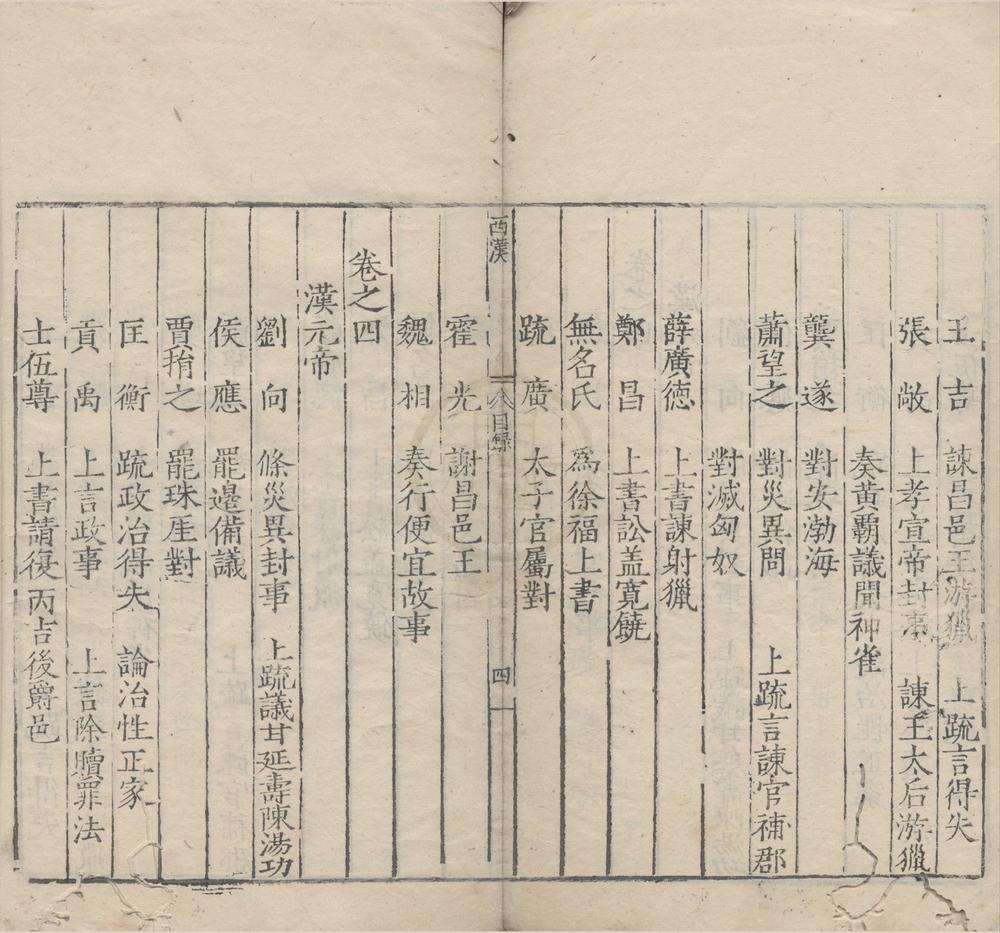 王吉 諫昌邑王游獵 上疏言得失
張敞 上孝宣帝封事 諫王太后游獵
奏黃霸議聞神雀
龔遂 對安渤海
蕭望之 對災異問 上疏言諫官補郡
對滅匈奴
薛廣德 上書諫射獵
鄭昌 上書訟盖寬饒
無名氏 爲徐福上書
疏廣 太子官屬對
西漢 目錄 四
霍光 謝昌邑王
魏相 奏行便宜故事
卷之四
漢元帝
劉向 條災異封事 上疏議甘延壽陳湯功
侯應 罷邊備議
賈捐之 罷珠厓對
匡衡 疏政治得失 論治性正家
貢禹 上言政事 上言除贖罪法
士伍尊 上書請復丙吉後爵邑